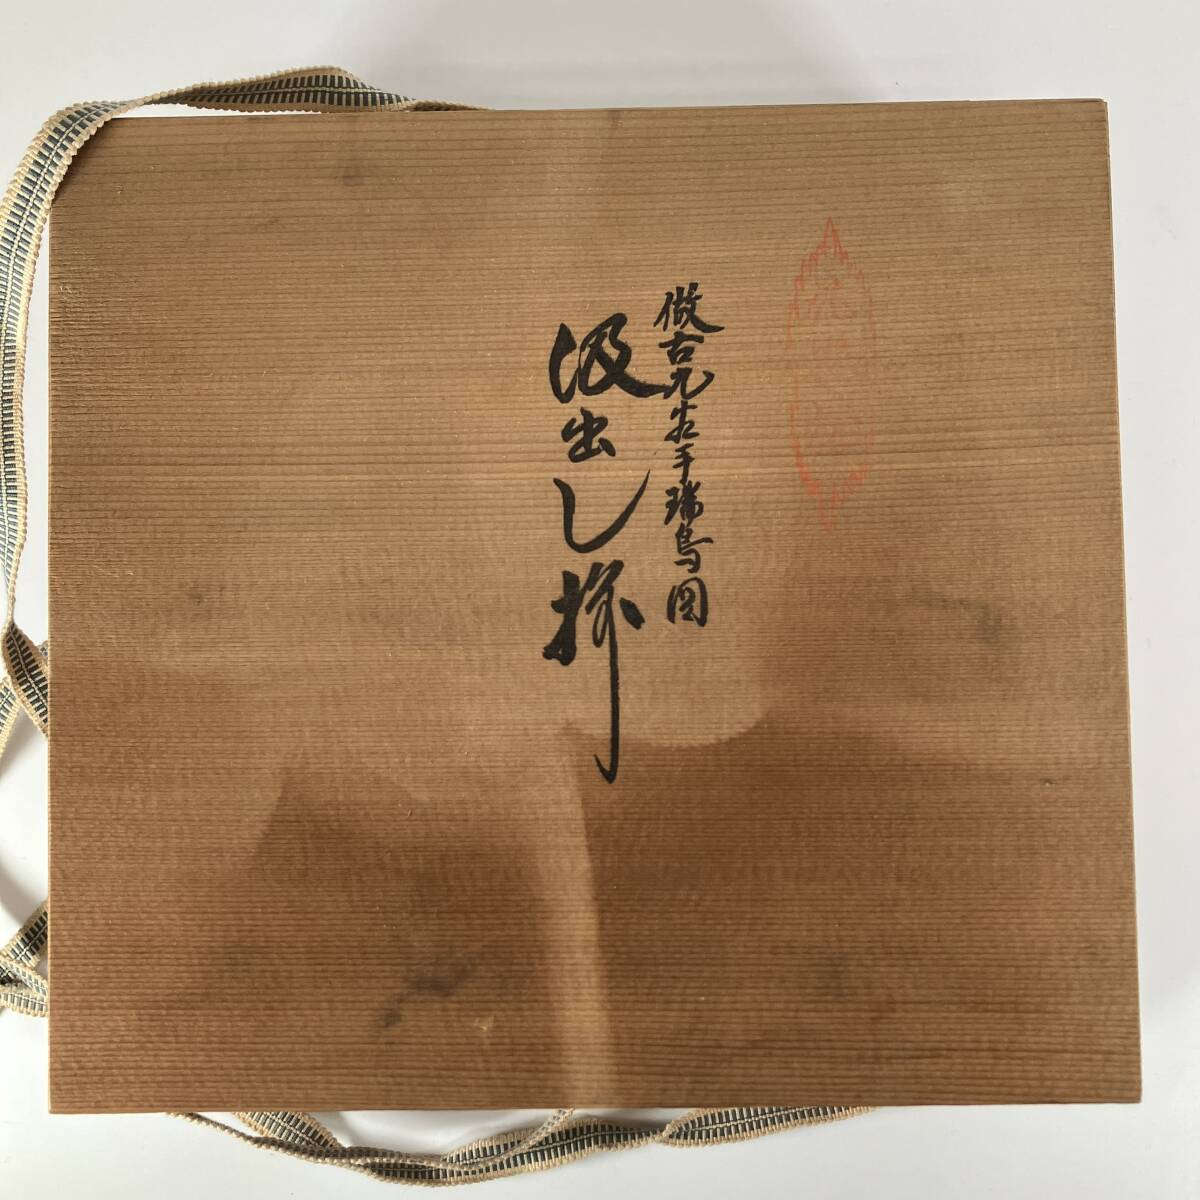 倣古九谷手瑞鳥図
汲出し揃